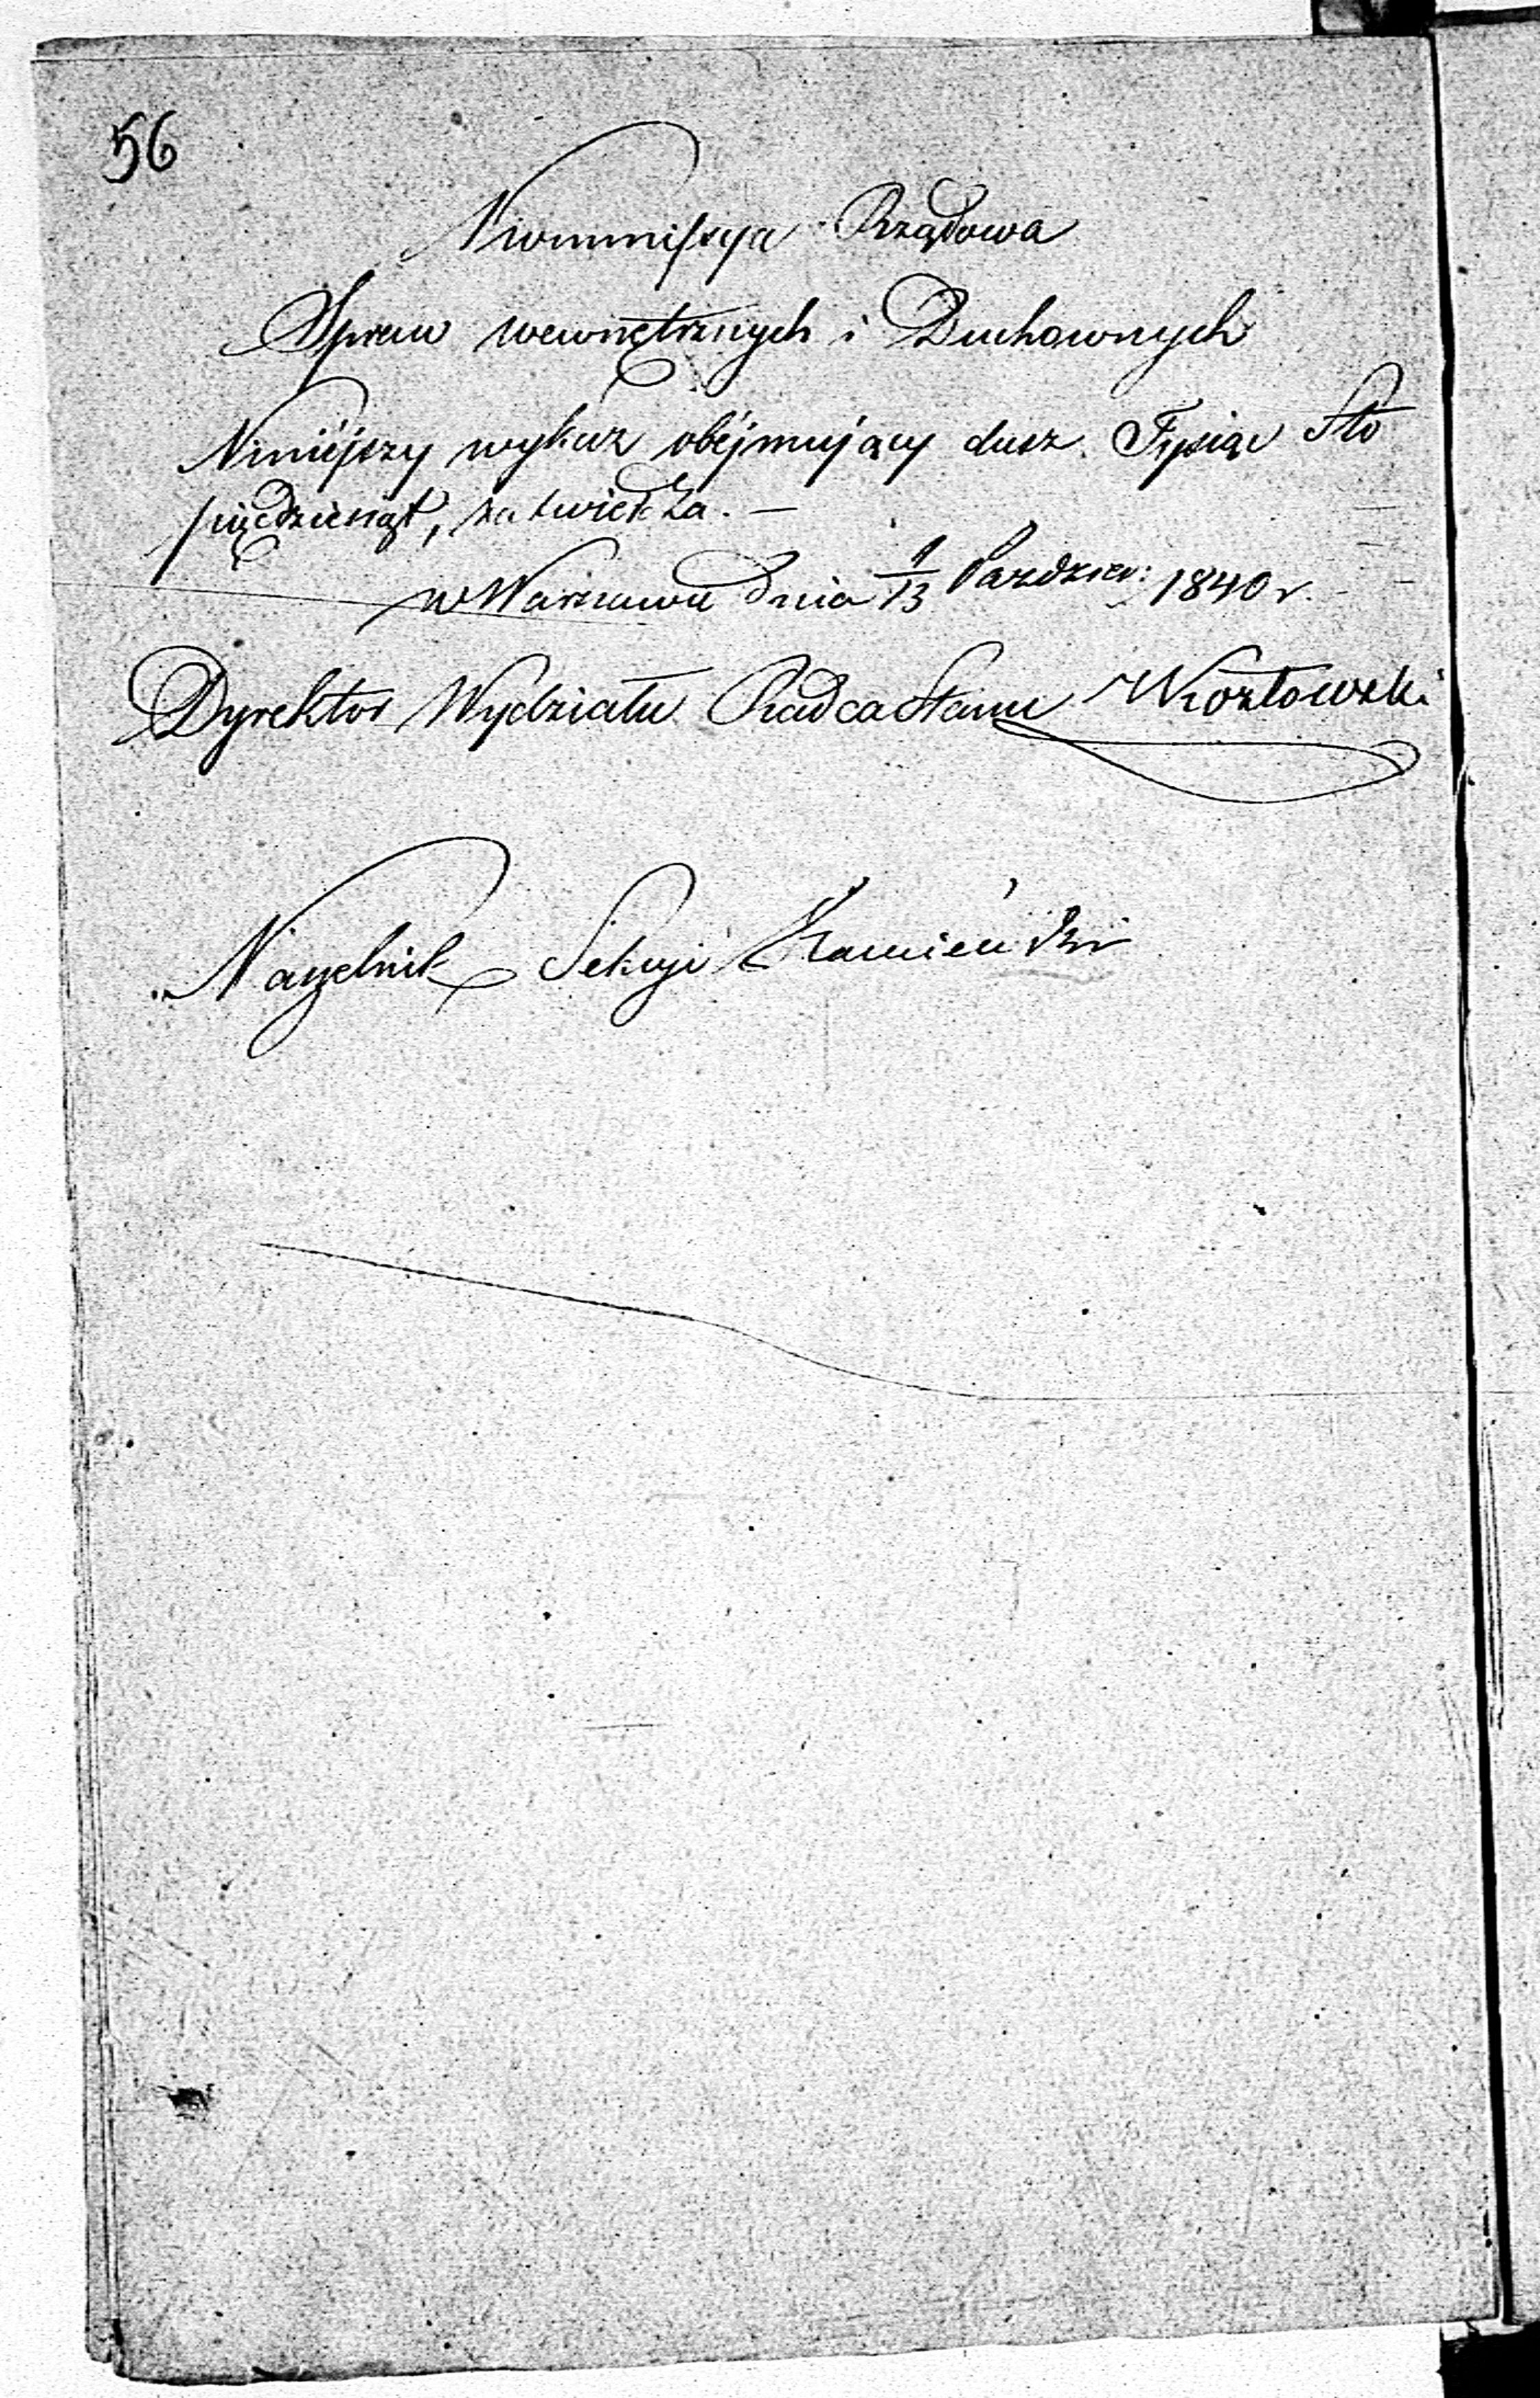 56
Kommissya Rządowa
Spraw wewnętrznych i Duchownych
Niniejszy wykaz obejmujący dusz Tysiąc Sto
pięćdziesiąt, zatwierdza. —
w Warszawie dnia 1/13 Paździer: 1840 r.
Dyrektor Wydziału Radca Stanu Kozłowski
Naczelnik Sekcyi Kamieński